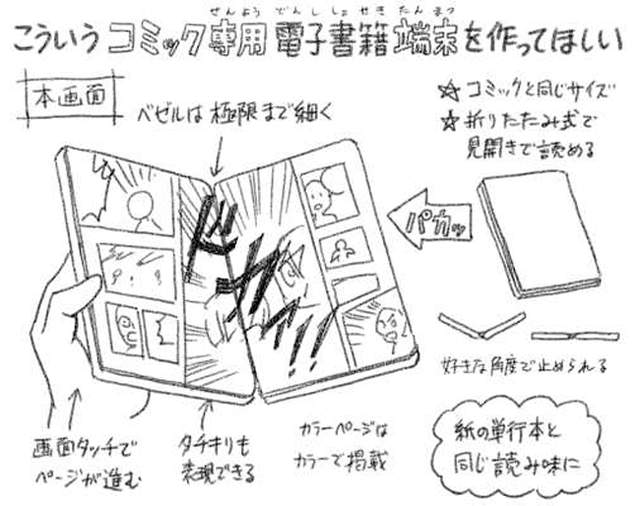 せんよう でんししょせきたんまつ
こういうコミック専用電子書籍端末を作ってほしい
本画面
ベゼルは極限まで細く
☆コミックと同じサイズ
☆折りたたみ式で
見開きで読める
パカッ
ドカッ!!
好きな角度で止められる
画面タッチで
ページが進む
タチキリも
表現できる
カラーページは
カラーで掲載
紙の単行本と
同じ読み味に